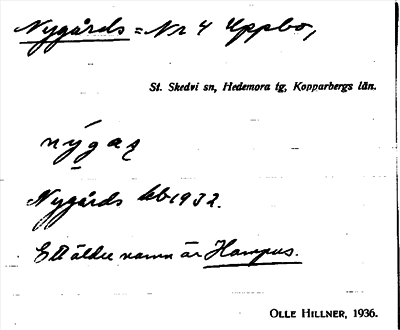 Nygårds = Nr 4 Uppbo,
St. Skedvi sn, Hedemora tg, Kopparbergs län.
nýgaṣ
Nygårds kb 1932.
Ett äldre namn är Hampus.
OLLE HILLNER, 1936.